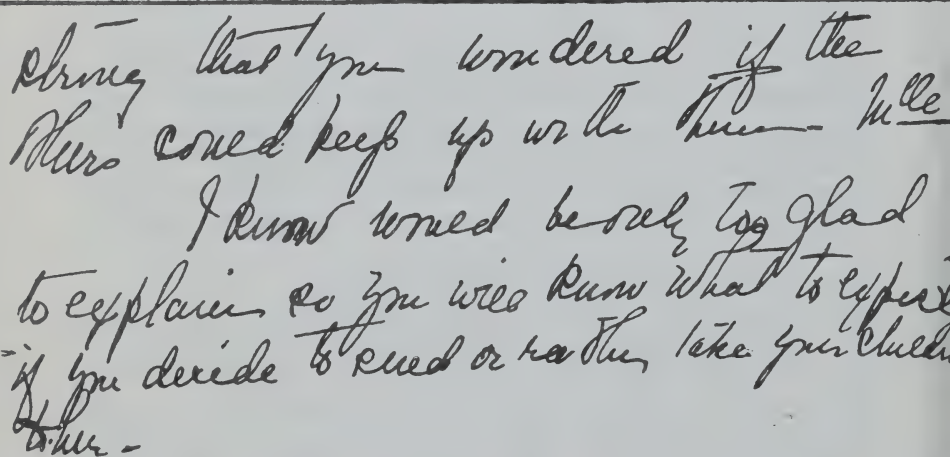 strong that you wondered if the
others could keep up with them – Mlle
I know would be only too glad
to explain so you will know what to expect
if you decide to send or rather take your children
to her –